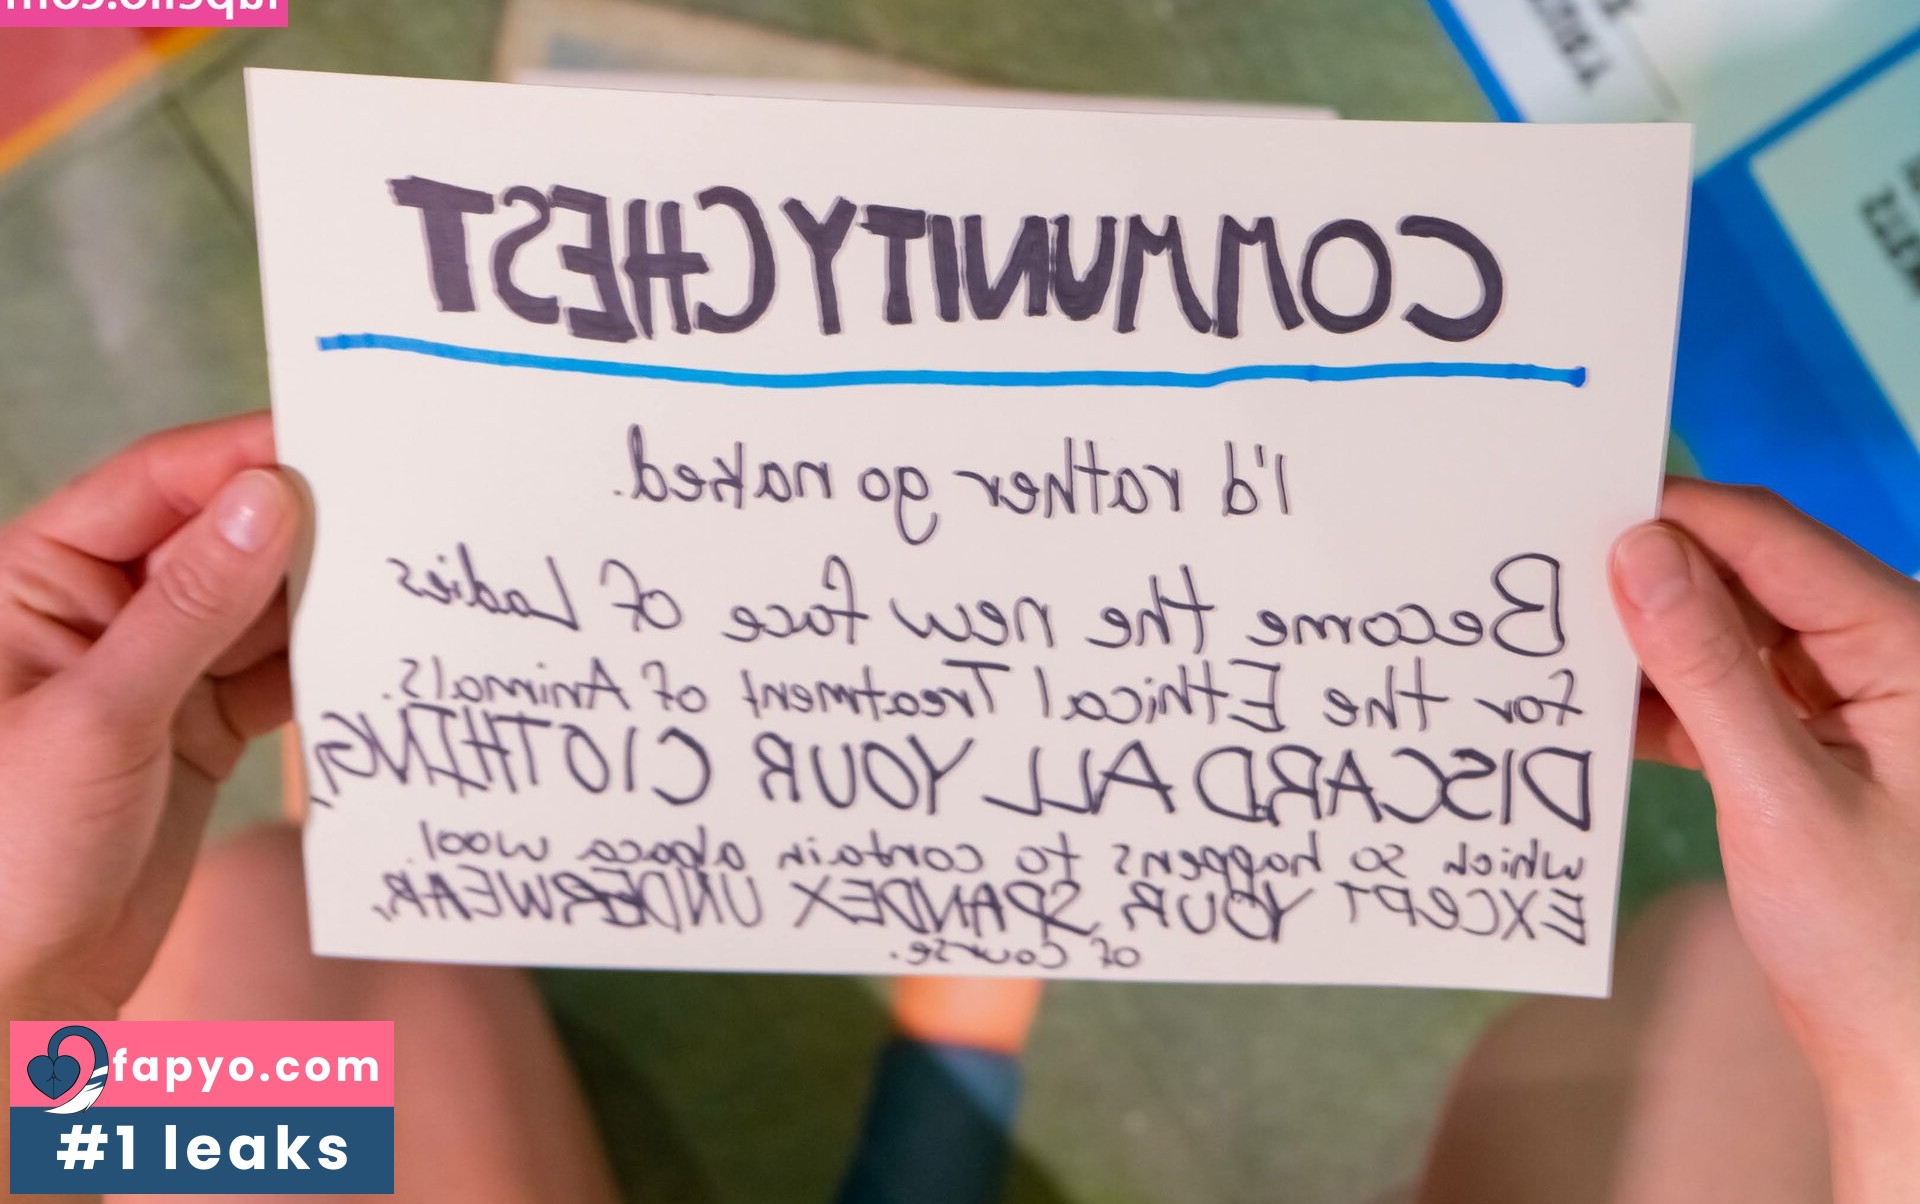 COMMUNITY CHEST
I'd rather go naked.
Become the new face of Ladies
for the Ethical Treatment of Animals.
DISCARD ALL YOUR ClOTHING,
which so happens to contain alpaca wool.
EXCEPT YOUR SPANDEX UNDERWEAR,
of course.
fapyo.com
#1 leaks